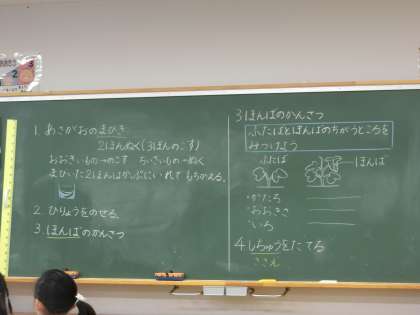 1. あさがおのまびき
2ほんぬく(3ぼんのこす)
おおきいもの→のこす ちいさいもの→ぬく
まびいた2ほんはかぷにいれてもちかえる。
2. ひりょうをのせる。
3. ほんばのかんさつ
3 ほんばのかんさつ
ふたばとほんばのちがうところを
みつけよう
ふたば
ほんば
・かたち
・おおきさ
・いろ
4. しちゅうをたてる
ささえ